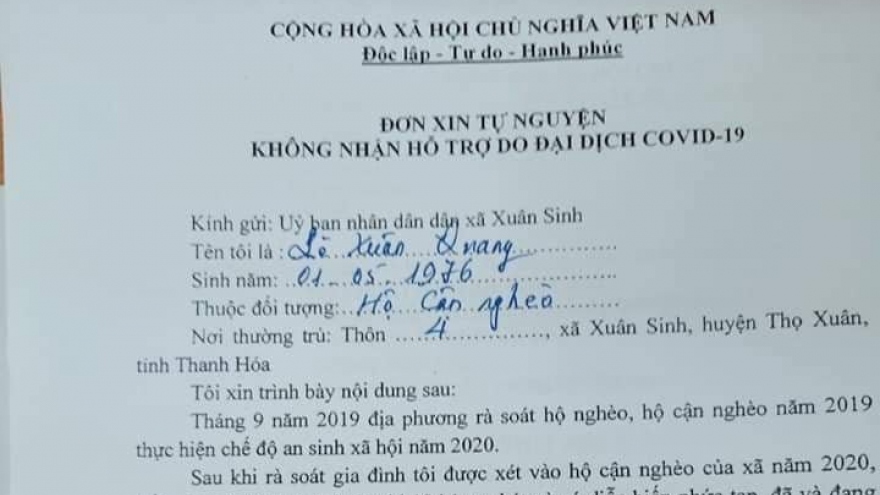 CỘNG HÒA XÃ HỘI CHỦ NGHĨA VIỆT NAM
Độc lập - Tự do - Hạnh phúc
ĐƠN XIN TỰ NGUYỆN
KHÔNG NHẬN HỖ TRỢ DO ĐẠI DỊCH COVID-19
Kính gửi: Uỷ ban nhân dân dân xã Xuân Sinh
Tên tôi là : Lê Xuân Quang
Sinh năm: 01. 05. 1976
Thuộc đối tượng: Hộ Cận nghèo
Nơi thường trú: Thôn 4, xã Xuân Sinh, huyện Thọ Xuân,
tỉnh Thanh Hóa
Tôi xin trình bày nội dung sau:
Tháng 9 năm 2019 địa phương rà soát hộ nghèo, hộ cận nghèo năm 2019
thực hiện chế độ an sinh xã hội năm 2020.
Sau khi rà soát gia đình tôi được xét vào hộ cận nghèo của xã năm 2020,
đã và đang